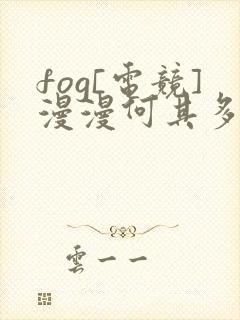 fog[電競]
漫漫何其多
雲一一